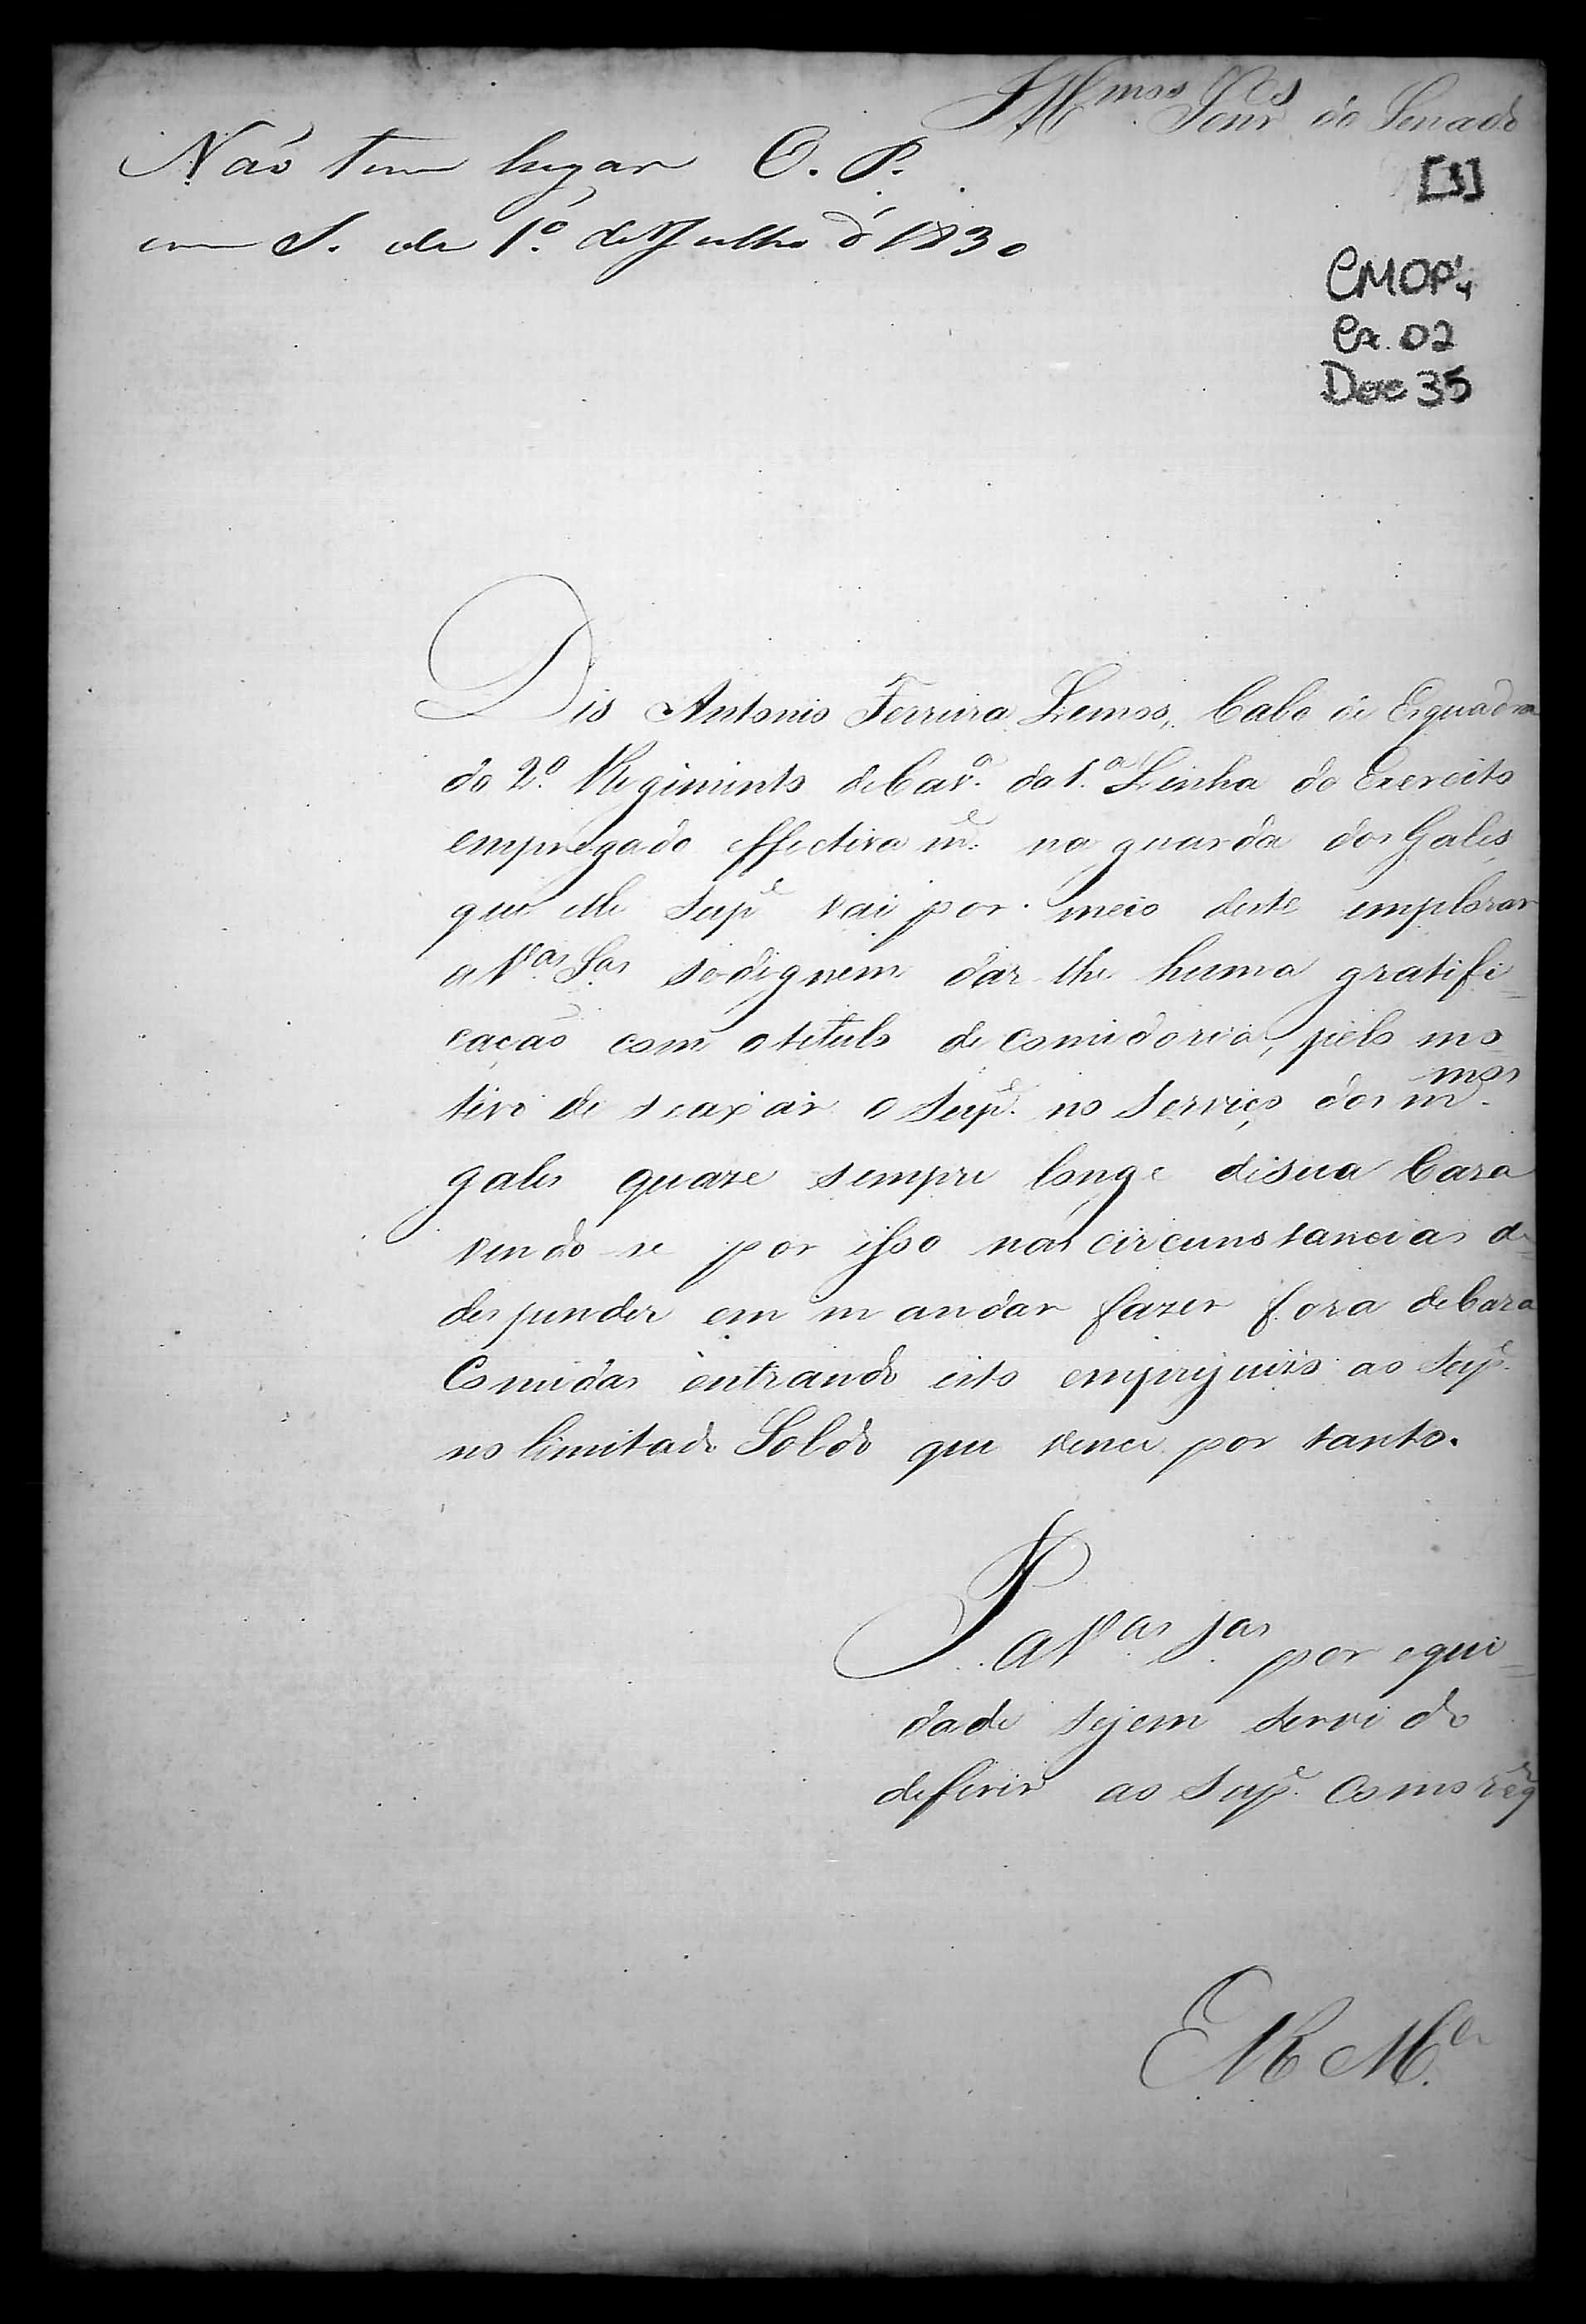 Illmos. Senres do Senado
Não tem lugar O. P.
em S. de 1º. de Julho d 1830
[1]
CMOP
Cx. 02
Doc 35
Dis Antonio Ferreira Lemos, Cabo de Esquadra
do 2º. Regimento de Cavª. da 1.ª Linha do Exercito
empregado effectiva me. na guarda dos Gales,
que elle Supe vai por meio deste emplorar
a Vas Sas. se dignem dar lhe huma gratifi=
cação com o titulo de comidoria, pelo mo
tivo de se axar o Supe. no Serviço dos mmos.
gales quaze sempre longe de sua Caza
vendo-se por isso nas circunstancias de
despender em mandar fazer fora de Caza
Comidas entrando isto em prejuizo ao Supe.
no limitado Soldo que vence por tanto.
P. a Vas. Sas. por equi=
dade sejem servido
deferir ao Supe. Como req
E R Mce.